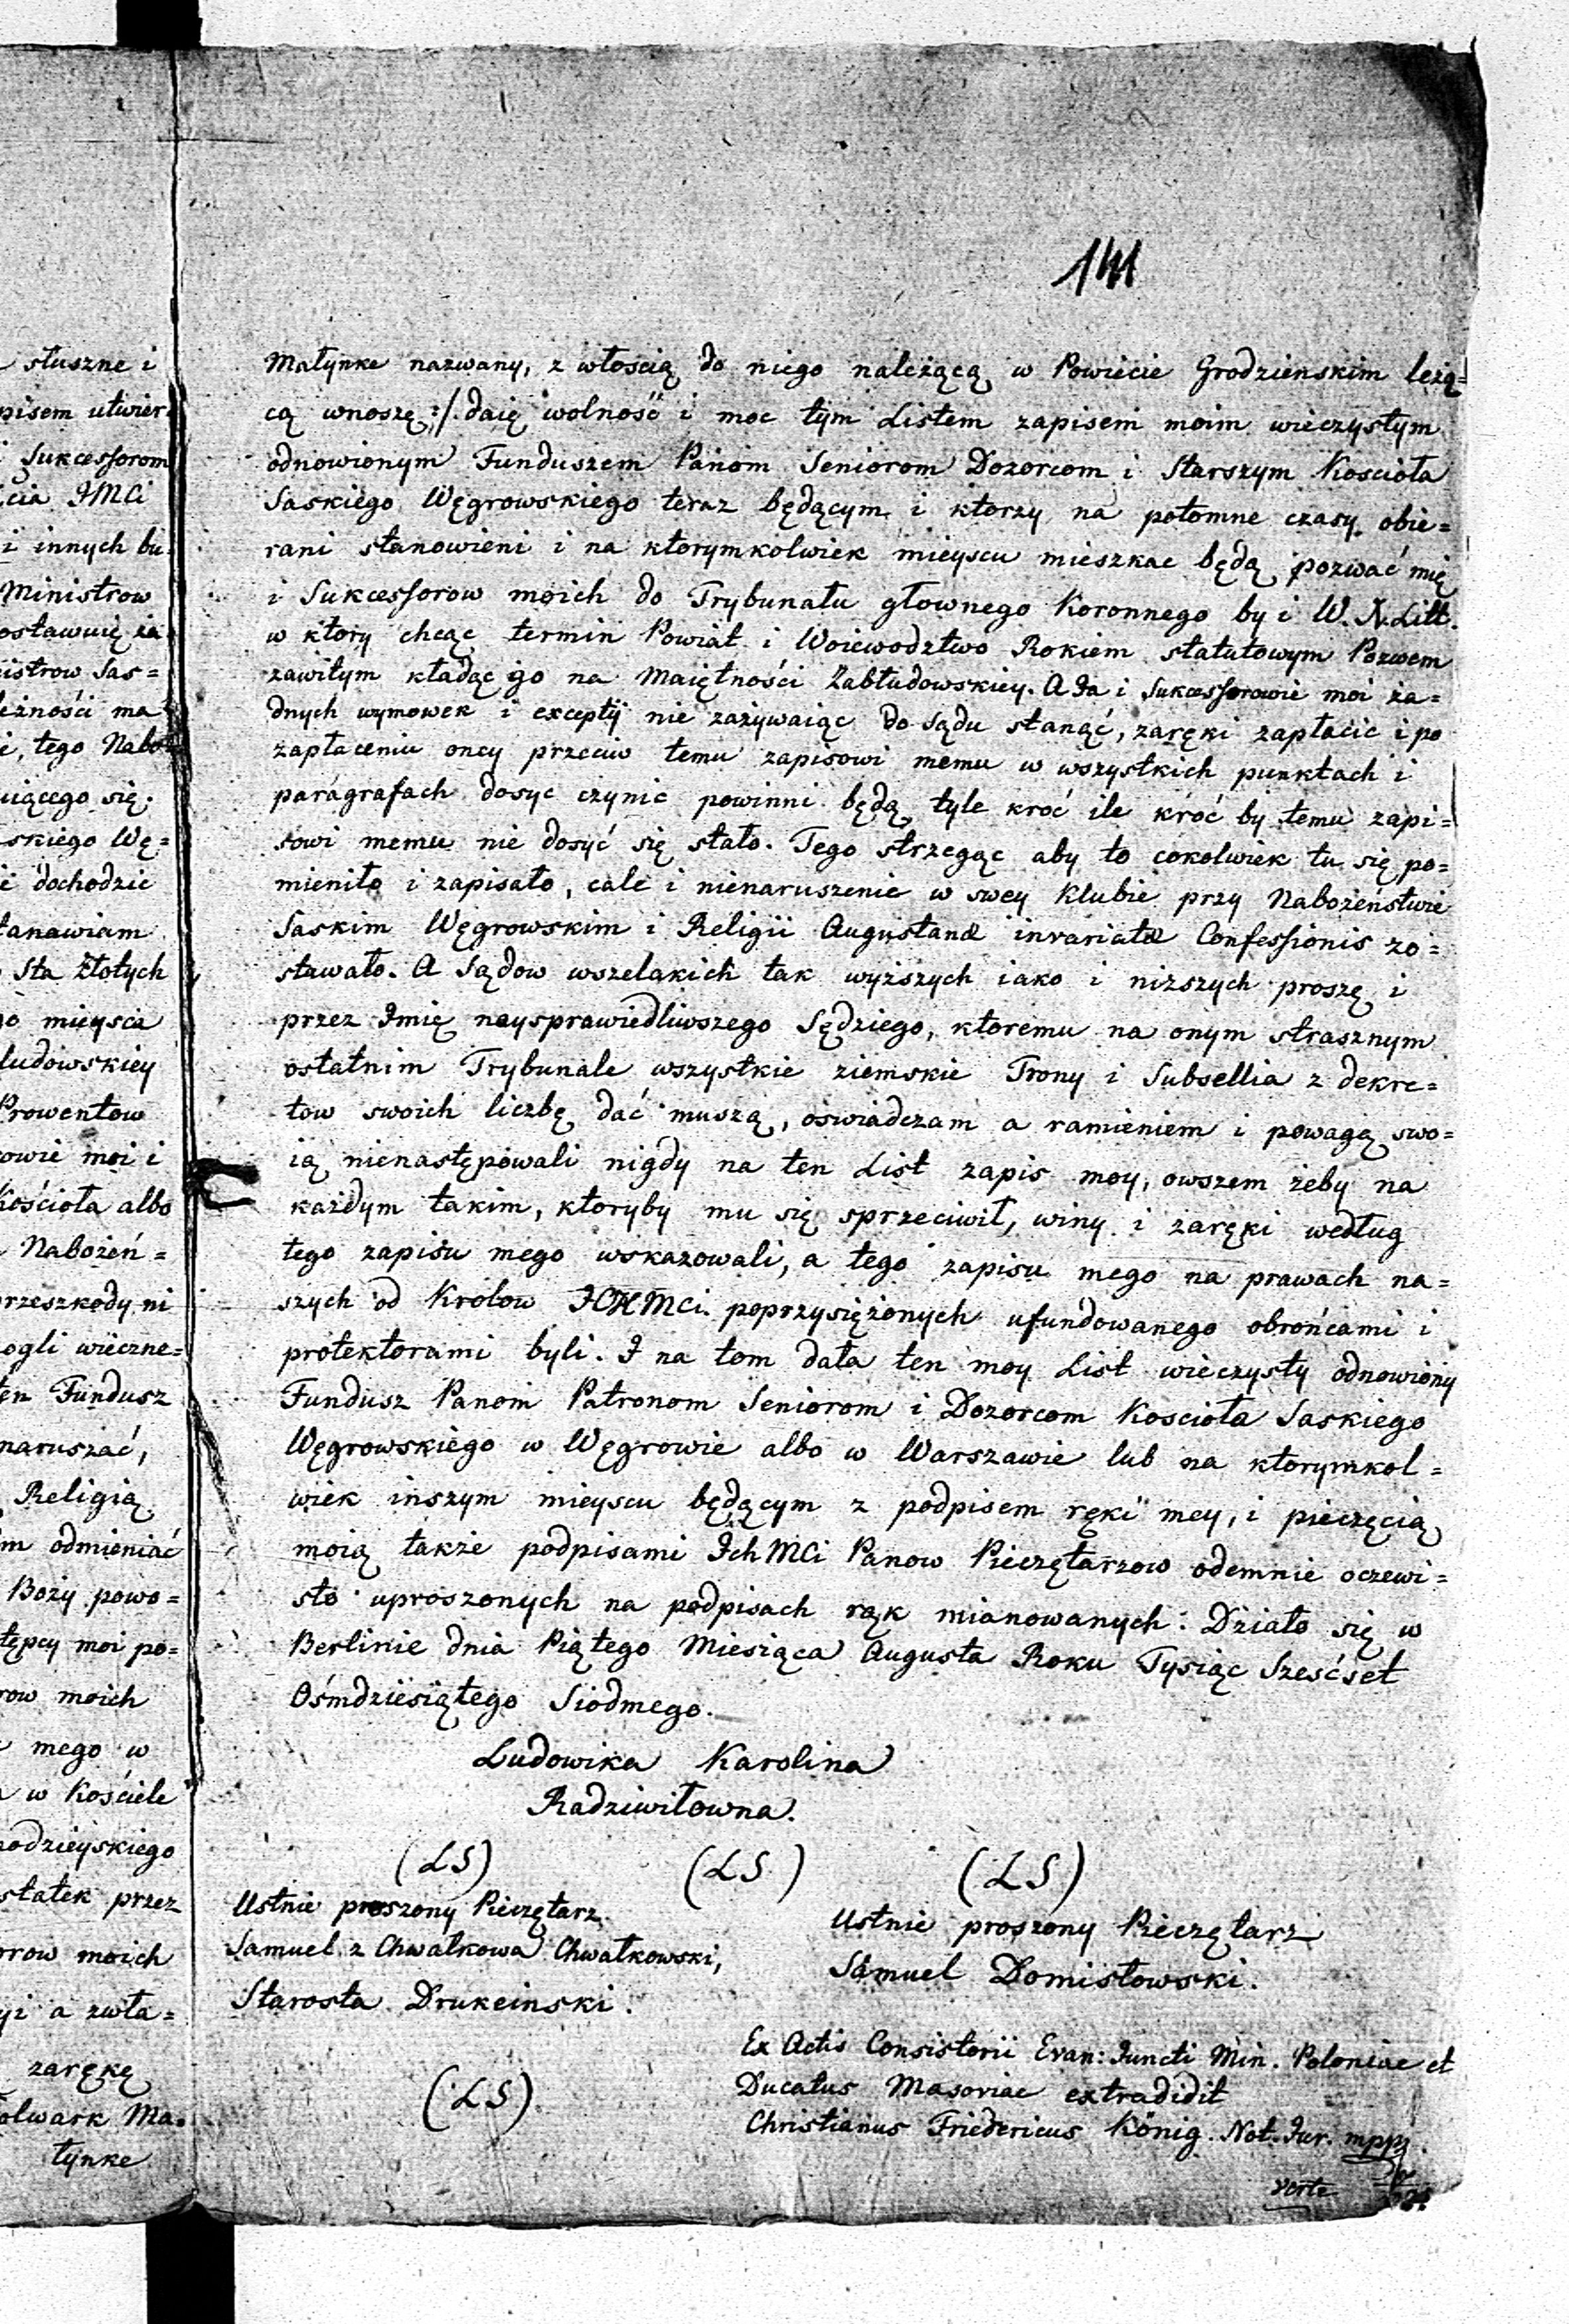 141
słuszne i
pisem utwier
Sukcessorom
cia JMCi
i innych bu
Ministrow
istrow Sas=
leżności ma
, tego Nabo
uiącego się.
skiego Wę=
dochodzic
tanawiam
Sta złotych
o mieysca
ludowskiey
Prowentow
owie moi i
Kościoła albo
Nabożeń=
rzeszkody ni
ogli wieczne=
ten Fundusz
naruszać,
Religią
m odmieniać
Boży powo=
tępcy moi po=
row moich
mego w
w Kościele
odzieyskiego
statek przez
orow moich
yi a zwła=
zarękę
olwark Ma=
łynke
Małynke nazwany, z włością do niego należącą w Powiecie Grodzienskim leżą=
cą wnoszę :/. daię wolność i moc tym Listem zapisem moim wieczystym
odnowionym Funduszem Panom Seniorom Dozorcom i Starszym Koscioła
Saskiego Węgrowskiego teraz będącym i ktorzy na potomne czasy obie=
rani stanowieni i na ktorymkolwiek mieyscu mieszkac będą pozwać mię
i Sukcessorow moich do Trybunału głownego Koronnego by i W. X. Litt.
w ktory chcąc termin Powiat i Woiewodztwo Rokiem statutowym Pozwem
zawitym kładąc go na Maiętności Zabłudowskiey. A Ja i Sukcessorowie moi ża=
dnych wymowek i exceptij nie zażywaiąc do Sądu stanąć, zaręki zapłacic i po
zapłaceniu oney przeciw temu zapisowi memu w wszystkich punktach i
paragrafach dosyc czynic powinni będą tyle kroć ile kroć by temu zapi=
sowi memu nie dosyć się stało. Tego strzegąc aby to cokolwiek tu się po=
mieniło i zapisało, cale i nienaruszenie w swey klubie przy Nabożeństwie
Saskim Węgrowskim i Religii Augustanæ invariatæ Confessionis zo=
stawało. A Sądow wszelakich tak wyższych iako i niższych proszę i
przez Imię naysprawiedliwszego Sędziego, ktoremu na onym strasznym
ostatnim Trybunale wszystkie ziemskie Trony i Subsellia z dekre=
tow swoich liczbę dać muszą, oświadczam a ramieniem i powagą swo=
ią nienastępowali nigdy na ten List zapis moy, owszem żeby na
każdym takim, ktoryby mu się sprzeciwił, winy i zaręki według
tego zapisu mego wskazowali, a tego zapisu mego na prawach na=
szych od Krolow JCHMCi poprzysiężonych ufundowanego obrońcami i
protektorami byli. I na tom dała ten moy List wieczysty odnowiony
Fundusz Panom Patronom Seniorom i Dozorcom Koscioła Saskiego
Węgrowskiego w Węgrowie albo w Warszawie lub na ktorymkol=
wiek inszym mieyscu będącym z podpisem ręki mey, i pieczęcią
moią także podpisami Ich MCi Panow Pieczętarzow odemnie oczewi=
sto uproszonych na podpisach rąk mianowanych: Działo się w
Berlinie dnia Piątego Miesiąca Augusta Roku Tysiąc Sześćset
Ośmdziesiątego Siodmego.
Ludowika Karolina
Radziwiłowna.
(LS) (LS) (LS)
Ustnie proszony Pieczętarz
Samuel z Chwałkowa Chwałkowski,
Starosta Drukeinski.
Ustnie proszony Pieczętarz
Samuel Domisłowski.
(LS)
Ex Actis Consistorii Evan: Juncti Min. Poloniae et
Ducatus Masoviae extradidit
Christianus Friedericus König. Not. Jur. mpp.
verte